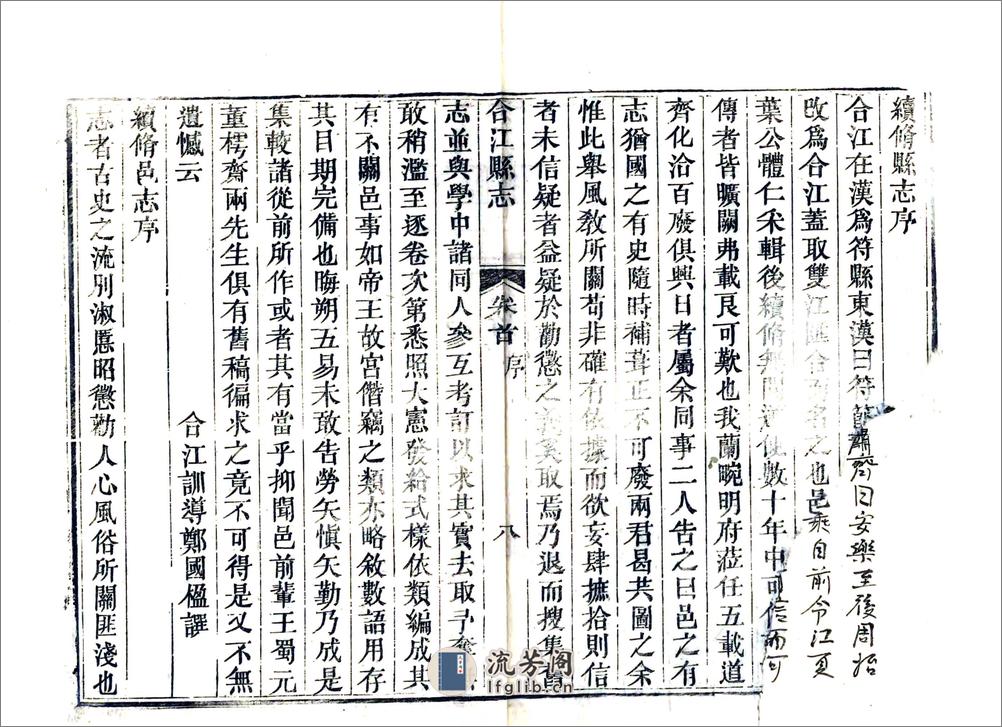 續脩縣志序
合江在漢爲符縣東漢曰符節齊曰安樂至後周始
改爲合江蓋取雙江匯合而名之也邑乘自前令江夏
葉公體仁采輯後續脩無聞迄僅數十年中可信而可
傳者皆曠闕弗載良可歎也我蘭畹明府蒞任五載道
齊化洽百廢俱興日者屬余同事二人告之曰邑之有
志猶國之有史隨時補葺正不可廢兩君曷共圖之余
惟此舉風教所關苟非確有依據而欲妄肆摭拾則信
者未信疑者益疑於勸懲之義奚取焉乃退而搜集舊
合江縣志 卷首 序 八
志並與學中諸同人參互考訂以求其實去取予奪
敢稍濫至逐卷次第悉照大憲發給式樣依類編成其
有不關邑事如帝王故宮僭竊之類亦略敘數語用存
其目期完備也晦朔五易未敢告勞矢愼矢勤乃成是
集較諸從前所作或者其有當乎抑聞邑前輩王蜀元
董樗齋兩先生俱有舊稿徧求之竟不可得是又不無
遺憾云
合江訓導鄭國楹譔
續脩邑志序
志者古史之流別淑慝昭懲勸人心風俗所關匪淺也
流芳阁
lfglib.cn